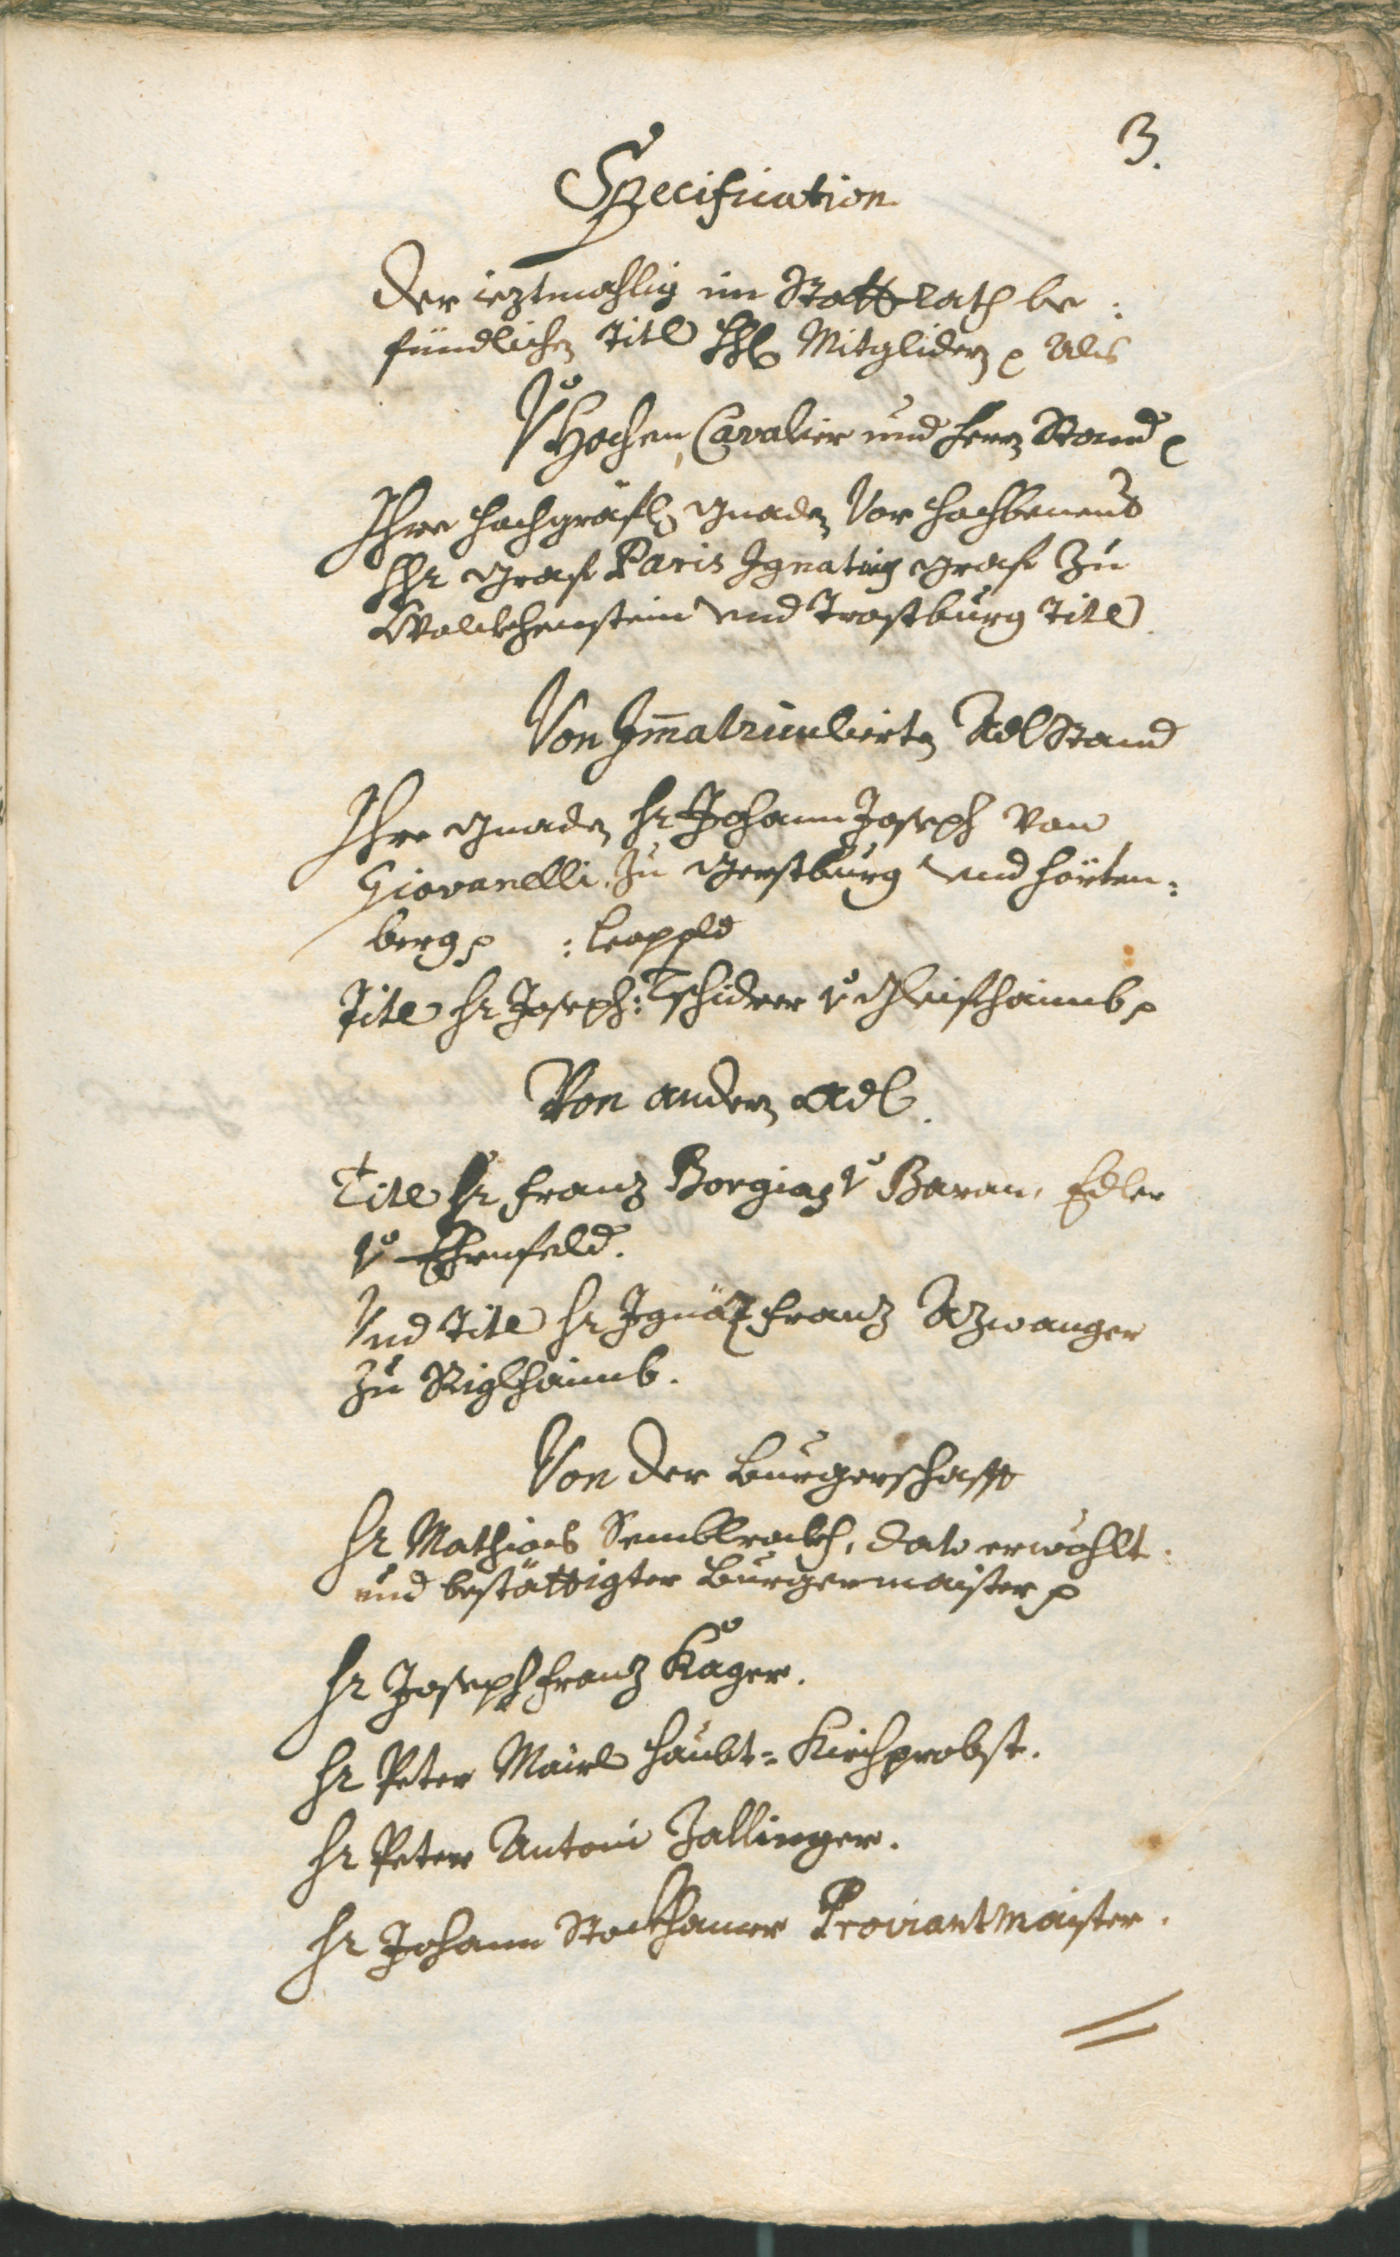 3.
Specification
Der ieztmahlig im Stattrath be:
fündlichen Titl HH Mitglidern p Als
V Hochen, Cavalier und Herrn Stand p
Ihro Hochgräfl Gnaden Vor Hochbenents
HHr Graf Paris Ignatius Graf zu
Wolckhenstein und Trostburg Titl
Von Im̄atriculierten Adl Stand
Ihro Gnaden Hr Johann Joseph von
Giovanelli, zu Gerstburg und Hörten:
berg p : Leopold
Titl Hr Joseph: Tschiderer v Gleifhaimb p
Von andern Adl.
Titl Hr Franz Borgias v Bavan, Edler
v Ehrnfeld.
Und Titl Hr Ignäz Franz Azwanger
zu Riglhaimb.
Von der Burgerschafft
Hr Mathias Semblrockh, dato erwöhlt:
und bestättigter Burgermaister p
Hr Joseph Franz Kager.
Hr Peter Mairl Haubt=Kirchprobst.
Hr Peter Antoni Zallinger.
Hr Johann Stockhamer Proviantmaister.